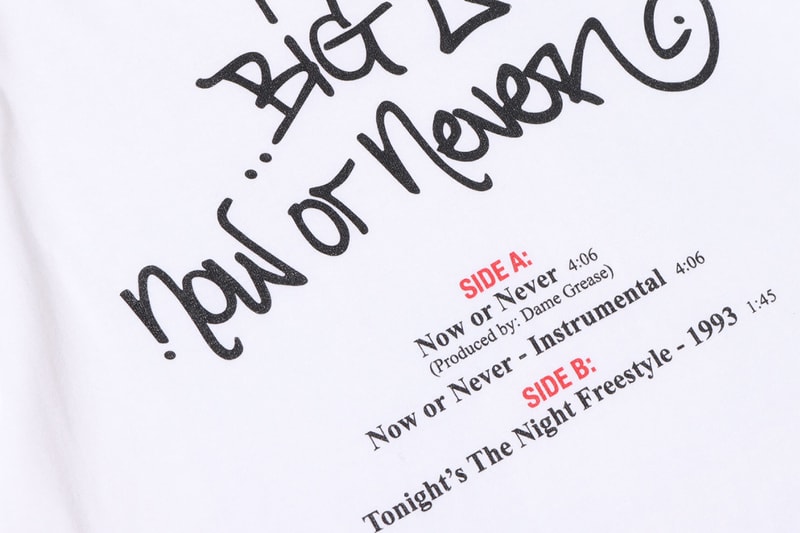 BIG L
now or never
SIDE A:
Now or Never 4:06
(Produced by: Dame Grease)
Now or Never - Instrumental 4:06
SIDE B:
Tonight's The Night Freestyle - 1993 1:45